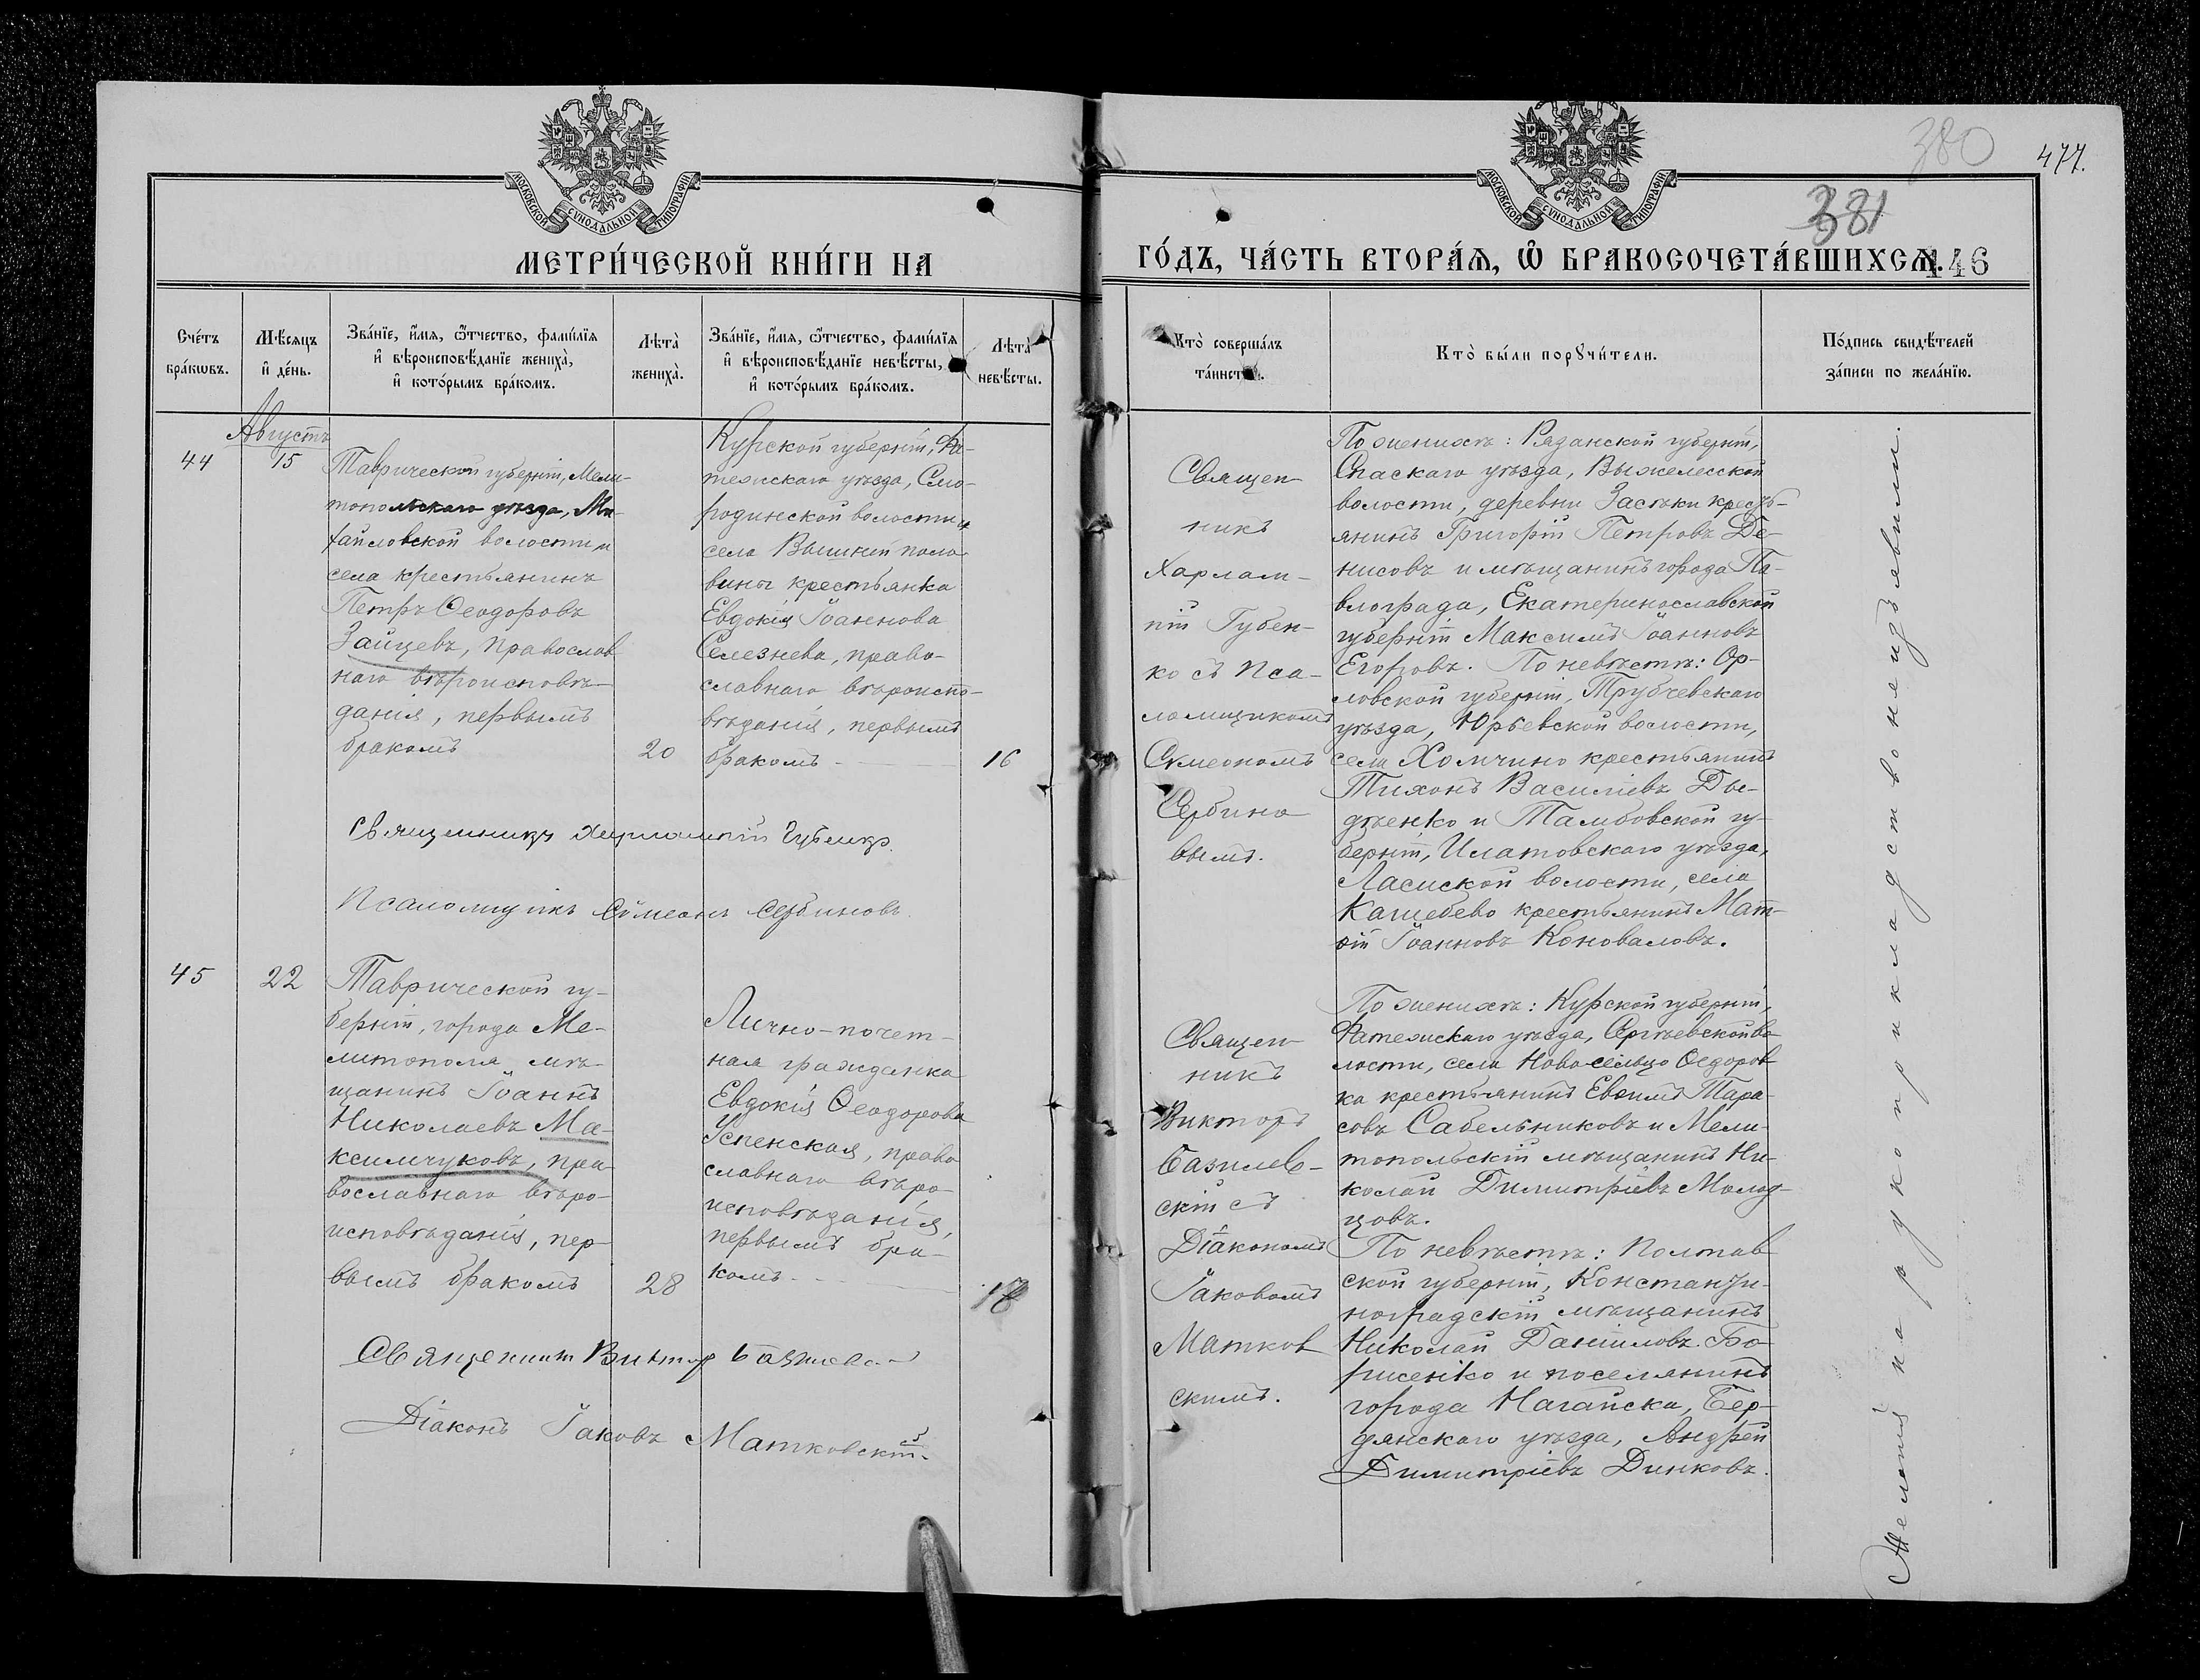 МОСКОВСКОЙ СѴНОДАЛЬНОЙ ТИПОГРАФІИ
МЕТРИ́ЧЕСКОЙ КНИ́ГИ НА
Сче́тъ бра́кѡвъ.
Мѣ́сяцъ и҆ де́нь.
Зва́нїе, и҆́мѧ, ѻ҆́тчество, фами́лїѧ
и҆ вѣроисповѣ́данїе жениха̀,
и҆ кото́рымъ бра́комъ.
Лѣта̀ жениха̀.
Зва́нїе, и҆́мѧ, ѻ҆́тчество, фами́лїѧ
и҆ вѣроисповѣ́данїе невѣ́сты,
и҆ кото́рымъ бра́комъ.
Лѣта̀ невѣ́сты.
Августъ
44
15
Таврической губерніи, Мели-
топольскаго уѣзда, Ми-
хайловской волости и
села крестьянинъ
Петръ Ѳеодоровъ
Зайцевъ, православ
наго вѣроисповѣ-
данія, первымъ
бракомъ
20
Курской губерніи, Фа-
тежскаго уѣзда, Смо-
родинской волости и
села Вышний поло-
вины крестьянка
Евдокія Іоаннова
Селезнева, право-
славнаго вѣроиспо-
вѣданія, первымъ
бракомъ -
16
Священникъ Харлампій Губенко
Псаломщикъ Сѵмеонъ Сербиновъ.
45
22
Таврической гу-
берніи, города Ме-
литополя мѣ-
щанинъ Іоаннъ
Николаевъ Ма-
ксимчуковъ, пра-
вославнаго вѣро-
исповѣданія, пер-
вымъ бракомъ
28
Лично-почет-
ная гражданка
Евдокія Ѳеодорова
Успенская, право
славнаго вѣро-
исповѣданія,
первымъ бра-
комъ -
18
Священникъ Викторъ Базилевс
Діаконъ Іаковъ Матковскій.
380
477.
МОСКОВСКОЙ СѴНОДАЛЬНОЙ ТИПОГРАФІИ
381
ГО́ДЪ, ЧА́СТЬ ВТОРА́Я, Ѽ БРАКОСОЧЕТА́ВШИХСѦ.
446
Кто̀ соверша́лъ
та́инство.
Кто̀ бы́ли порꙋчи́тели.
По́дпись свидѣ́телей
за́писи по жела́нїю.
Священ
никъ
Харлам-
пій Губен-
ко съ Пса-
ломщикомъ
Сѵмеономъ
Сербино
вымъ.
По женихѣ: Рязанской губерніи,
Спаскаго уѣзда, Выжелесской
волости, деревни Засѣки кресть-
янинъ Григорій Петровъ Де-
нисовъ и мѣщанинъ города Па-
влограда, Екатеринославской
губерніи Максимъ Іоанновъ
Егоровъ. По невѣстѣ: Ор-
ловской губерніи, Трубчевскаго
уѣзда, Юрьевской волости,
села Холмчино крестьянинъ
Тихонъ Василіевъ Ды-
дѣенко и Тамбовской гу-
берніи, Илатовскаго уѣзда,
Ласиской волости, села
Кашебево крестьянинъ Мат-
ѳій Іоанновъ Коноваловъ.
Священ
никъ
Викторъ
Базилев-
скій съ
Діакономъ
Іаковомъ
Матков
скимъ.
По женихѣ: Курской губерніи,
Фатежскаго уѣзда, Сергѣевской во-
лости, села Ново сельцо Ѳедоров
ка крестьянинъ Евѳимъ Тара-
совъ Сабельниковъ и Мели-
топольскій мѣщанинъ Ни-
колай Димитріевъ Молод-
цовъ.
По невѣстѣ: Полтав
ской губерніи, Константи-
ноградскій мѣщанинъ
Николай Даніиловъ Бо-
рисенко и поселянинъ
города Нагайска, Бер-
дянскаго уѣзда, Андрей
Димитріевъ Динковъ.
Желанія на рукоприкладство не изъявили.